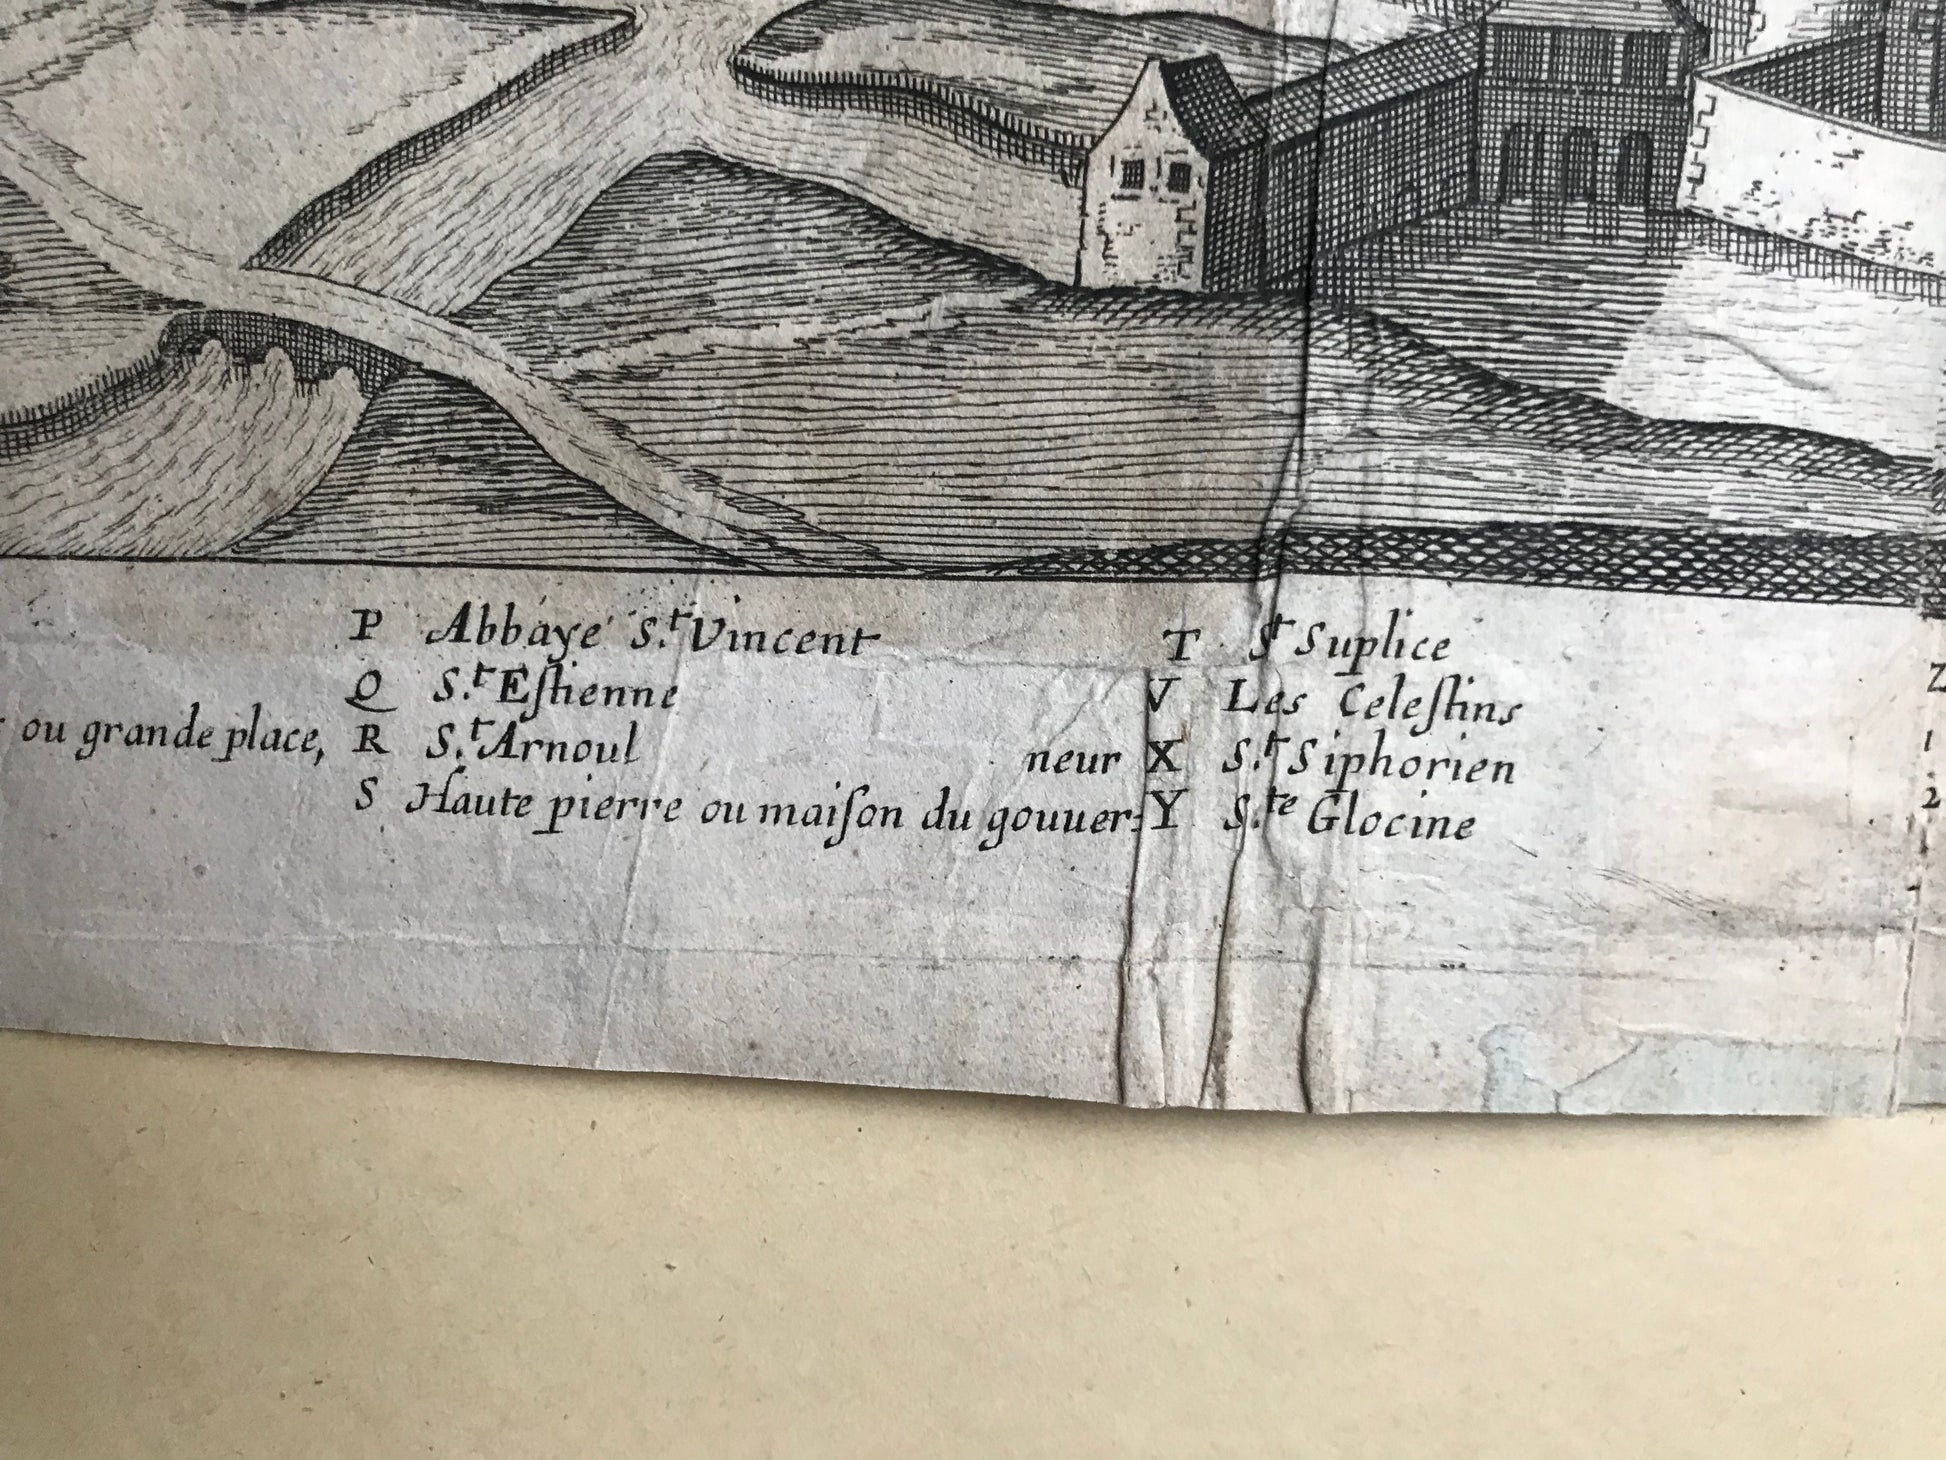 P Abbaye S.t Vincent
Q S.t Eſtienne
ou grande place, R S.t Arnoul
S Haute pierre ou maiſon du gouuer-
neur
T St Suplice
V Les Celeſtins
X S.t Siphorien
Y S.te Glocine
Z
1
2